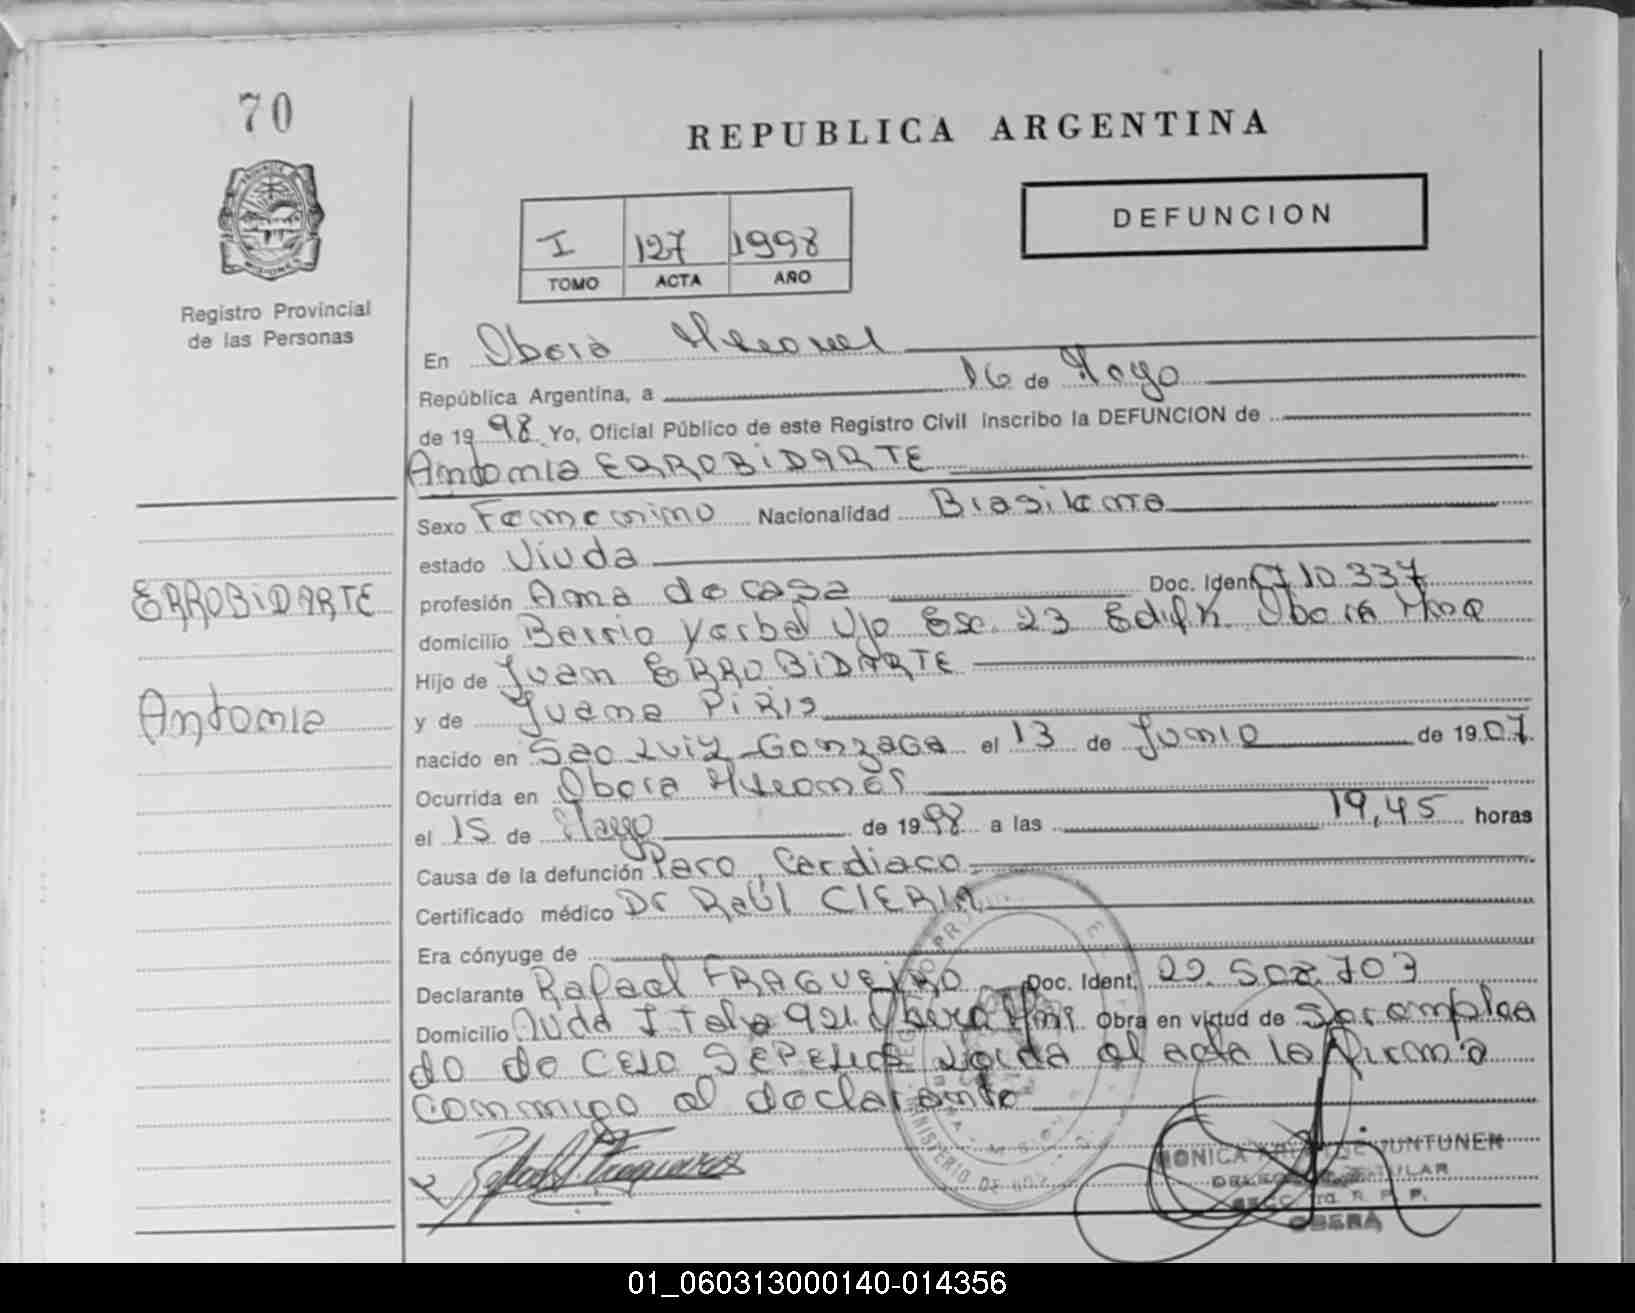 70
REPUBLICA ARGENTINA
DEFUNCION
I 127 1998
TOMO ACTA AÑO
Registro Provincial
de las Personas
En Obera Misiones
República Argentina, a 16 de Mayo
de 19 98 Yo, Oficial Público de este Registro Civil inscribo la DEFUNCION de
Antonia ERROBIDARTE
Sexo Femenino Nacionalidad Brasilena
estado Viuda
profesión Ama de casa Doc. Ident. 710.337
domicilio Barrio Yerbal Viejo Esc. 23 Edif Obera Mnes
Hijo de Juan ERROBIDARTE
y de Juana PIRIS
nacido en Sao Luiz Gonzaga el 13 de Junio de 19 07.
Ocurrida en Obera Misiones
el 15 de Mayo de 19 98 a las 19,45 horas
Causa de la defunción Paro Cardiaco
Certificado médico Dr Raúl CIERIA
Era cónyuge de
Declarante Rafael FRAGUEIRO Doc. Ident. 22.502.703
Domicilio Avda Italia 921 Obera Mnes Obra en virtud de Ser emplea
do de CELO SEPELIOS Leida el acta la firma
conmigo el declarante
ERROBIDARTE
Antonia
MONICA JUNTUNEN
TITULAR
R. P. P.
OBERA
01_060313000140-014356